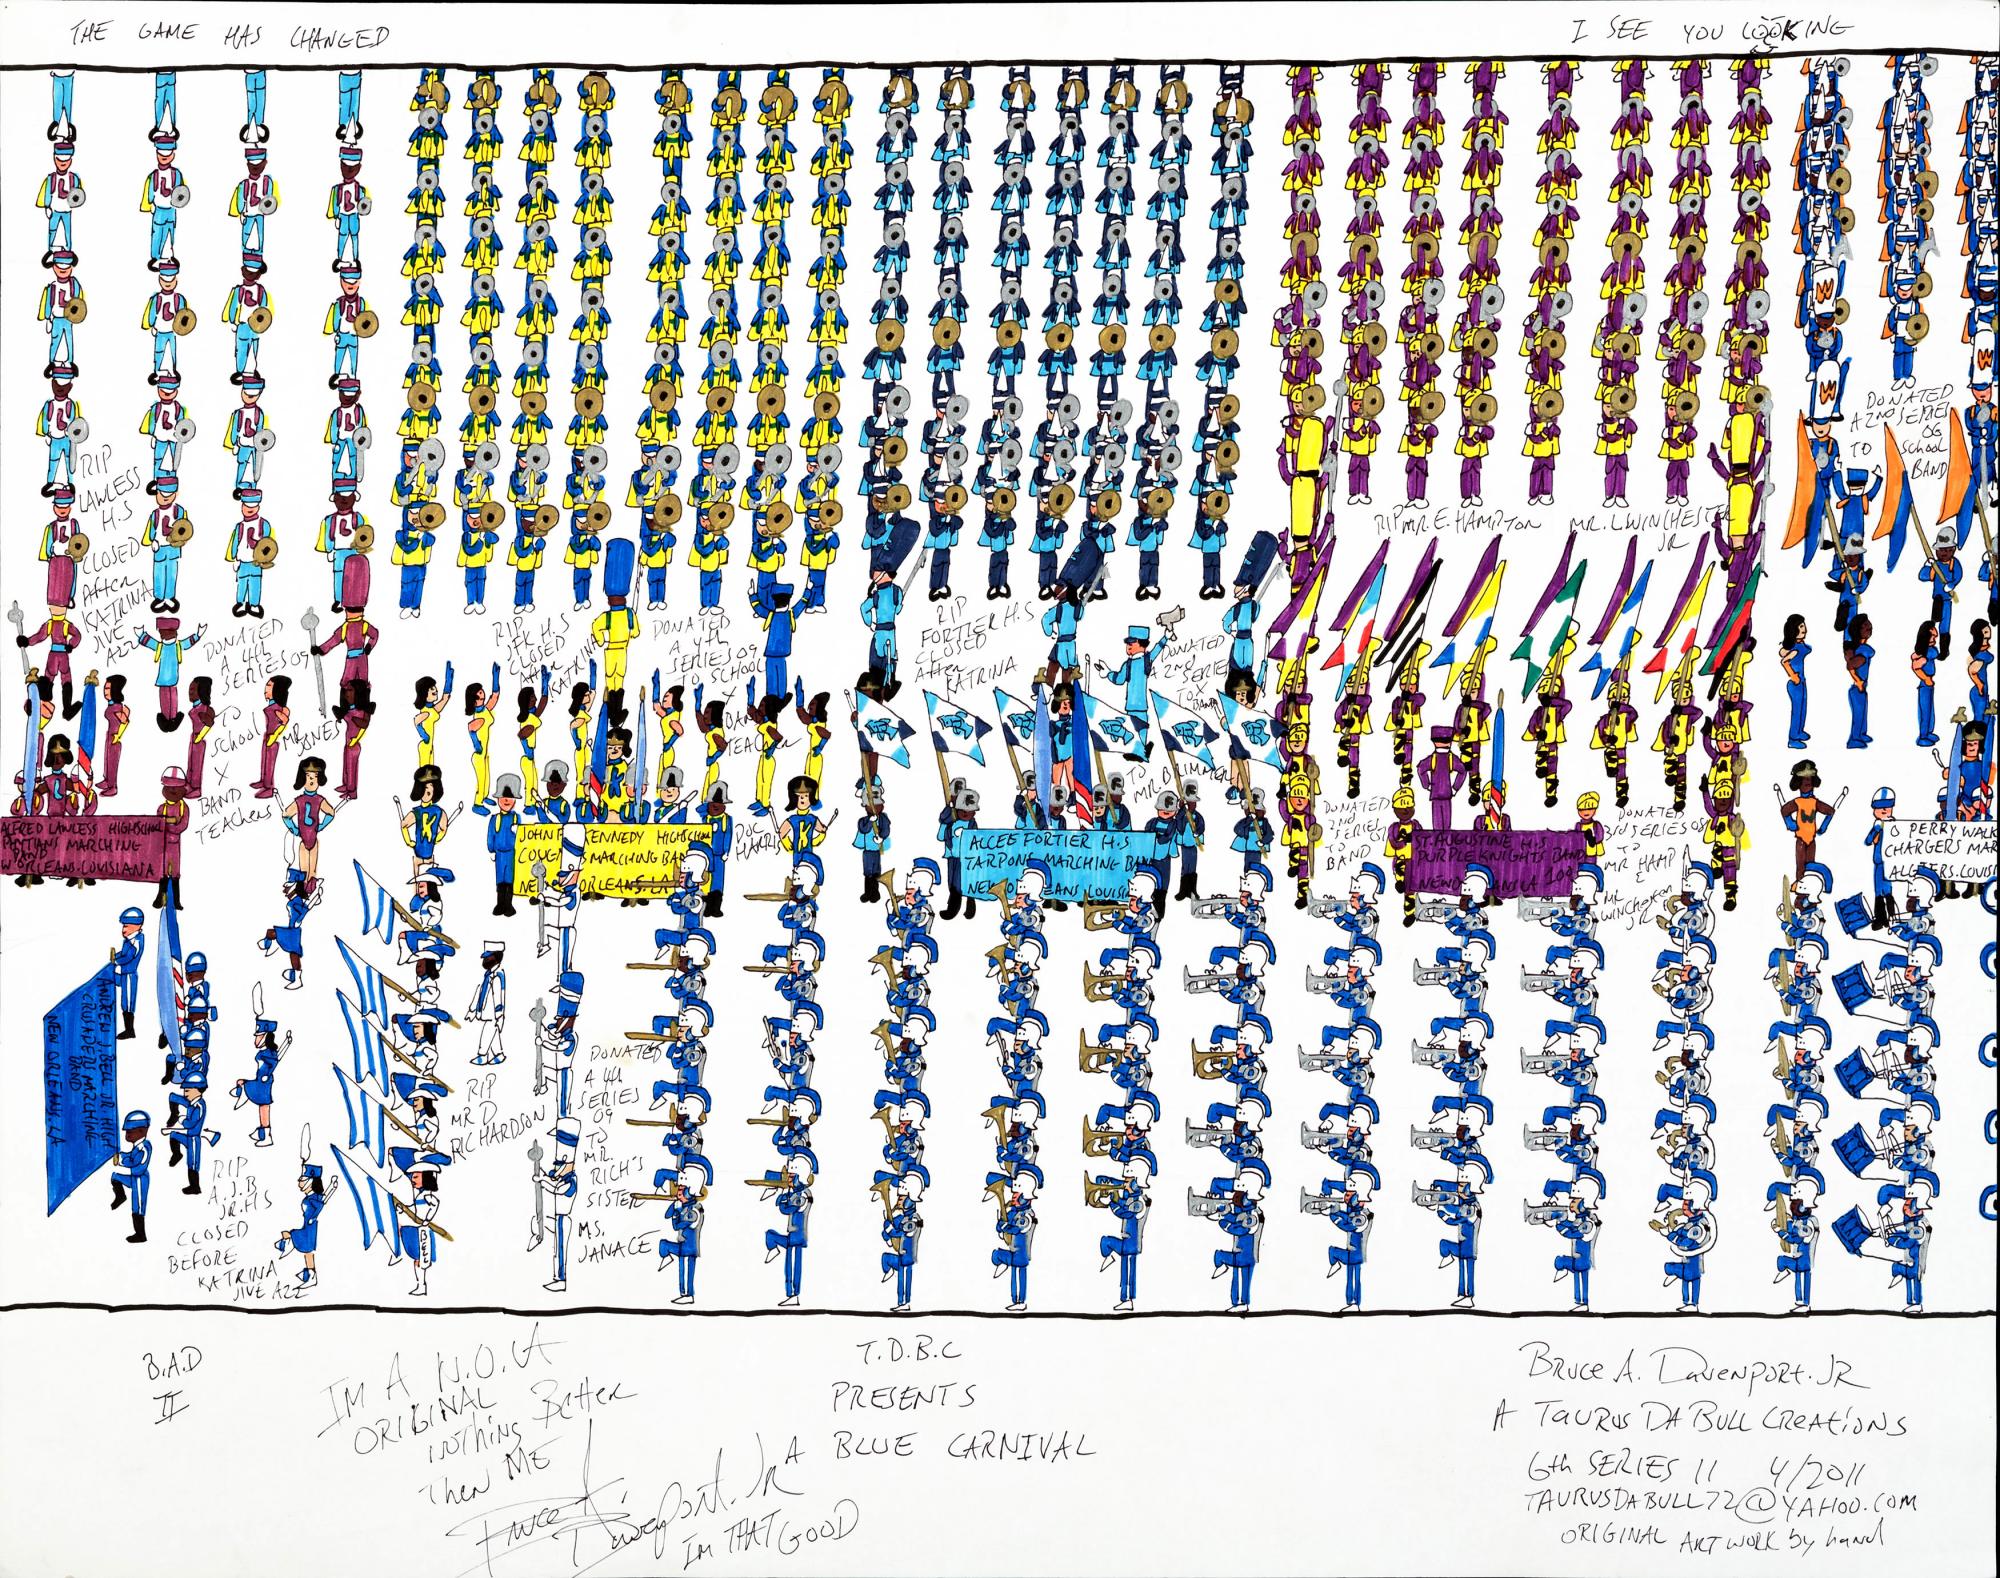 THE GAME HAS CHANGED
I SEE YOU LOOKING
RIP
LAWLESS
H.S
CLOSED
AFTER
KATRINA
JIVE
AZZ
DONATED
A 4th
SERIES 09
TO
School
MR. JONES
X
BAND
TEACHERS
RIP
JFK H.S
CLOSED
After
KATRINA
DONATED
A 4th
SERIES 09
TO SCHOOL
X
BAND
TEACHER
DOC
HARRIS
RIP
FORTIER H.S
CLOSED
After
KATRINA
DONATED
A 2nd
SERIES
TO X
BAND
TO
MR. BRIMMER
RIP MR E. HAMPTON
MR. L WINCHESTER
JR
DONATED
2nd
SERIES
TO
BAND
DONATED
3rd SERIES 08
TO
MR HAMP
&
MR
WINCHESTER
JR
DONATED
A 2nd SERIES
OG
TO School
BAND
ALFRED LAWLESS HIGHSCHOOL
PYTIANS MARCHING
BAND
W ORLEANS. LOUISIANA
JOHN F KENNEDY HIGHSCHOOL
COUG S MARCHING BAN
NE ORLEANS. LA
ALCEE FORTIER H.S.
TARPONS MARCHING BAND
NEW O EANS LOUISI
ST. AUGUSTINE H.S
PURPLE KNIGHTS BAND
NEW O ANS LA 100
O PERRY WALK
CHARGERS MAR
ALGIERS. LOUISI
ANDREW J. BELL JR HIGH
CRUSADERS MARCHING
BAND
NEW ORLEANS. LA
RIP
A. J. B
JR. H S
CLOSED
BEFORE
KATRINA
JIVE AZZ
BELL
RIP
MR D
RICHARDSON
DONATED
A 4th
SERIES
09
TO
MR.
RICH'S
SISTER
MS.
JANACE
B.A.D
II
IM A N.O.LA
ORIGINAL
NOTHING Better
Then ME
Bruce A. Davenport. Jr
IM THAT GOOD
T.D.B.C
PRESENTS
A BLUE CARNIVAL
BRUCE A. DAVENPORT. JR
A TAURUS DA BULL CREATIONS
6th SERIES 11 4/2011
TAURUSDABULL72@YAHOO.COM
ORIGINAL ART WORK by hand